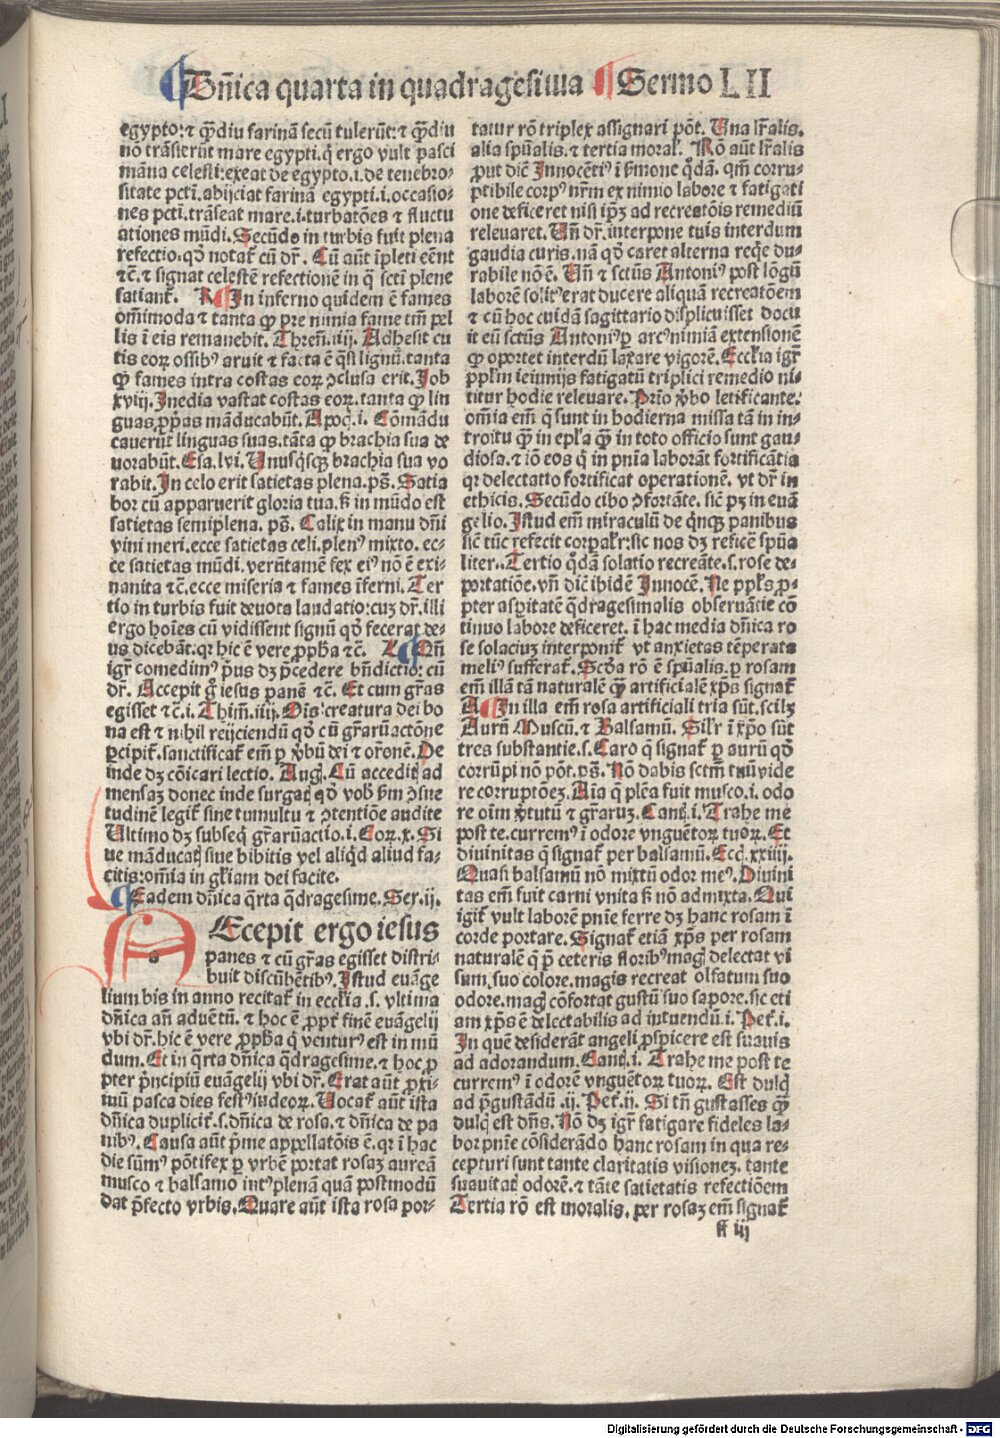 Dñica quarta in quadragesima Sermo LII
egypto: ⁊ q̃diu farinã secũ tulerũt: ⁊ q̃diu
nõ trãsierũt mare egypti. q̃ ergo vult pasci
mãna celesti: exeat de egypto. i. de tenebro⸗
sitate pcti. abijciat farinã egypti. i. occasio⸗
nes pcti. trãseat mare. i. turbatões ⁊ fluctu
ationes mũdi. Secũdo in turbis fuit plena
refectio. qđ notat̃ cũ dr̃. Cũ aũt ĩpleti eẽnt
⁊c̃. ⁊ signat celestẽ refectionẽ in q̃ scti plene
satiant̃. In inferno quidem ẽ fames
om̃imoda ⁊ tanta ꝙ pre nimia fame tm̃ pel
lis ĩ eis remanebit. Thren̄. iiij. Adhesit cu
tis eoꝝ ossibꝰ aruit ⁊ facta ẽ q̃si lignũ. tanta
ꝙ fames intra costas eoꝝ ꝯclusa erit. Job
xviij. Inedia vastat costas eoꝝ. tanta ꝙ lin
guas ꝓpͥas mãducabũt. Apoc̃. i. Cõmãdu
cauerũt linguas suas. tãta ꝙ brachia sua de
uorabũt. Esa. lvi. Unusq̃sqꝫ brachia sua vo
rabit. In celo erit satietas plena. ps̃. Satia
bor cũ apparuerit gloria tua. ẞ in mũdo est
satietas semiplena. ps̃. Calix in manu dñi
vini meri. ecce satietas celi. plenꝰ mixto. ec⸗
ce satietas mũdi. verũtamẽ fex eiꝰ nõ ẽ exi⸗
nanita ⁊c̃. ecce miseria ⁊ fames ĩferni. Ter
tio in turbis fuit deuota laudatio: cuꝫ dr̃. illi
ergo hoĩes cũ vidissent signũ qđ fecerat de⸗
us dicebãt. qꝛ hic ẽ vere ꝓpħa ⁊c̃. Qñ
igr̃ comedimꝰ pͥus dꝫ p̃cedere bñdictio: cũ
dr̃. Accepit g̊ iesus panẽ ⁊c̃. Et cum gr̃as
egisset ⁊c̃. i. Thim̃. iiij. Ois creatura dei bo
na est ⁊ nihil reijciendũ qđ cũ gr̃aꝝ actõne
ꝑcipit̃. sanctificat̃ em̃ ꝑ ỽbũ dei ⁊ or̃onẽ. De
inde dꝫ cõicari lectio. Aug̃. Cũ acceditꝭ ad
mensaꝫ donec inde surgatꝭ qđ vobꝭ ẞm ꝯsue
tudinẽ legit̃ sine tumultu ⁊ ꝯtentiõe audite
Ultimo dꝫ subseq̃ gr̃aꝝ actio. i. Coꝝ. x. Si
ue mãducatꝭ siue bibitis vel aliq̃d aliud fa⸗
citis: om̃ia in gl̃iam dei facite.
Eadem dñica q̃rta q̃dragesime. Ser. ij.
Accepit ergo iesus
panes ⁊ cũ gr̃as egisset distri⸗
buit discũbẽtibꝰ. Istud euãge
lium bis in anno recitat̃ in ecclesia .s. vltima
dñica añ aduẽtũ. ⁊ hoc ẽ ꝓpt̃ finẽ euãgelij
vbi dr̃. hic ẽ vere ꝓpħa q̃ venturꝰ est in mũ
dum. Et in q̃rta dñica q̃dragesime. ⁊ hoc ꝓ
pter p̃ncipiũ euãgelij vbi dr̃. Erat aũt ꝓxi⸗
mũ pasca dies festꝰ iudeoꝝ. Uocat̃ aũt ista
dñica duplicit̃. s. dñica de rosa. ⁊ dñica de pa
nibꝰ. Causa aũt pͥme appellatõis ẽ. qꝛ ĩ hac
die sũmꝰ põtifex ꝑ vrbẽ portat rosaꝫ aureã
musco ⁊ balsamo intꝰ plenã quã postmodũ
dat p̃fecto vrbis. Quare aũt ista rosa por⸗
tatur rõ triplex assignari põt. Una lr̃alis.
alia spũalis. ⁊ tertia moral̃. Rõ aũt lr̃alis
ꝓut dic̃ Innocẽtiꝰ ĩ ẞmone q̃dã. qm̃ corru⸗
ptibile corpꝰ nr̃m ex nimio labore ⁊ fatigati
one deficeret nisi ip̃ꝫ ad recreatõis remediũ
releuaret. Uñ dr̃. interpone tuis interdum
gaudia curis. nã qđ caret alterna req̃e du⸗
rabile nõ ẽ. Uñ ⁊ sctũs Antoniꝰ post lõgũ
laborẽ solitꝰ erat ducere aliquã recreatõem
⁊ cũ hoc cuidã sagittario displicuisset docu
it eũ sctũs Antoniꝰ ꝑ arcꝰ nimiã extensionẽ
ꝙ oportet interdũ laxare vigorẽ. Eccl̃ia igr̃
ppl̃m ieiunijs fatigatũ triplici remedio ni⸗
titur hodie releuare. Prĩo ỽbo letificante:
om̃ia em̃ q̃ sunt in hodierna missa tã in in⸗
troitu q̃ in epl̃a q̃ in toto officio sunt gau⸗
diosa. ⁊ iõ eos q̃ in pñia laborãt fortificãtia
qꝛ delectatio fortificat operationẽ. vt dr̃ in
ethicis. Secũdo cibo ꝯfortãte. sic̃ pꝫ in euã
gelio. Istud em̃ miraculũ de q̃nqꝫ panibus
sic̃ tũc refecit corpal̃r: sic nos dꝫ reficẽ spũa
liter. Tertio q̃dã solatio recreãte. s. rose de⸗
portatiõe. vñ dic̃ ibidẽ Innocẽ. Ne ppl̃s ꝓ⸗
pter asp̃itatẽ q̃dragesimalis obseruãtie cõ
tinuo labore deficeret. ĩ hac media dñica ro
se solaciũ interponit̃ vt anxietas tẽperata
meliꝰ sufferat̃. Scđa rõ ẽ spũalis. ꝑ rosam
em̃ illã tã naturalẽ q̃ artificialẽ xp̃s signat̃
In illa em̃ rosa artificiali tria sũt. scilꝫ
Aurũ Muscũ. ⁊ Balsamũ. Sil̃r ĩ xp̃o sũt
tres substantie. s. Caro q̃ signat̃ ꝑ aurũ qđ
corrũpi nõ põt. ps̃. Nõ dabis sctm̃ tuũ vide
re corruptõeꝫ. Aĩa q̃ plẽa fuit musco. i. odo
re oĩm ỽtutũ ⁊ gr̃aruꝫ. Canꝭ. i. Trahe me
post te. curremꝰ ĩ odore vnguẽtoꝝ tuoꝝ. Et
diuinitas q̃ signat̃ per balsamũ. Ecc̃i. xxiiij.
Quasi balsamũ nõ mixtũ odor meꝰ. Diuini
tas em̃ fuit carni vnita ẞ nõ admixta. Qui
igit̃ vult laborẽ pñie ferre dꝫ hanc rosam ĩ
corde portare. Signat̃ etiã xp̃s per rosam
naturalẽ q̃ p̃ ceteris floribꝰ magꝭ delectat vi
sum suo colore. magis recreat olfatum suo
odore. magꝭ cõfortat gustũ suo sapore. sic eti
am xp̃s ẽ delectabilis ad intuendũ. i. Pet̃. i.
In quẽ desiderãt angeli ꝓspicere est suauis
ad adorandum. Canꝭ. i. Trahe me post te
curremꝰ ĩ odorẽ vnguẽtoꝝ tuoꝝ. Est dulcꝭ
ad p̃gustãdũ .ij. Pet̃. ij. Si tñ gustasses q̃
dulcꝭ est dñs. Nõ dꝫ igr̃ fatigare fideles la⸗
bor pñie cõsiderãdo hanc rosam in qua re⸗
cepturi sunt tante claritatis visioneꝫ. tante
suauitatꝭ odorẽ. ⁊ tãte satietatis refectiõem
Tertia rõ est moralis. per rosaꝫ em̃ signat̃
Digitalisierung gefördert durch die Deutsche Forschungsgemeinschaft - DFG